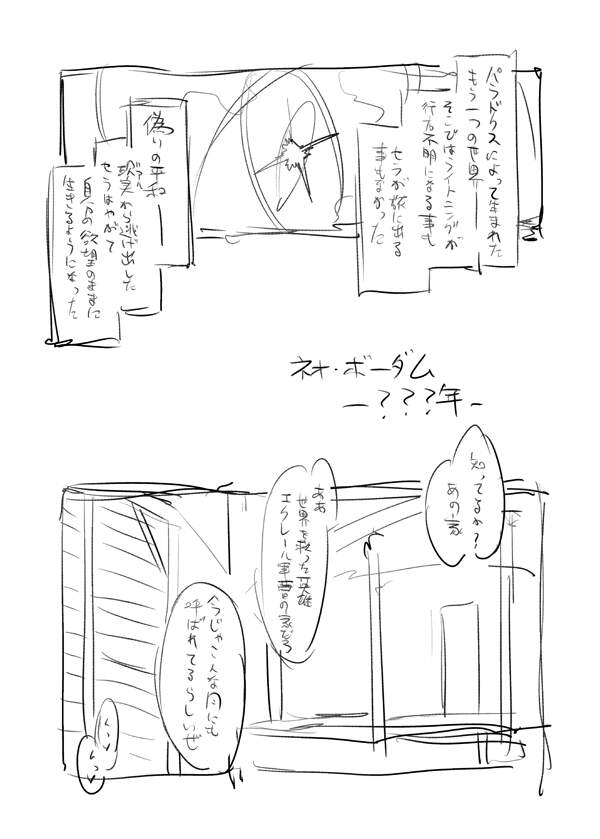 パラドクスによって生まれた
もう一つの世界――
そこではライトニングが
行方不明になる事も
セラが旅に出る
事もなかった
偽りの平和――
現実から逃げ出した
セラはやがて
自らの欲望のままに
生きるようになった
ネオ・ボーダム
－？？？年－
知ってるか？
あの家
ああ
世界を救った英雄
エクレール軍曹の家だろ
今じゃこんな風にも
呼ばれてるらしいぜ